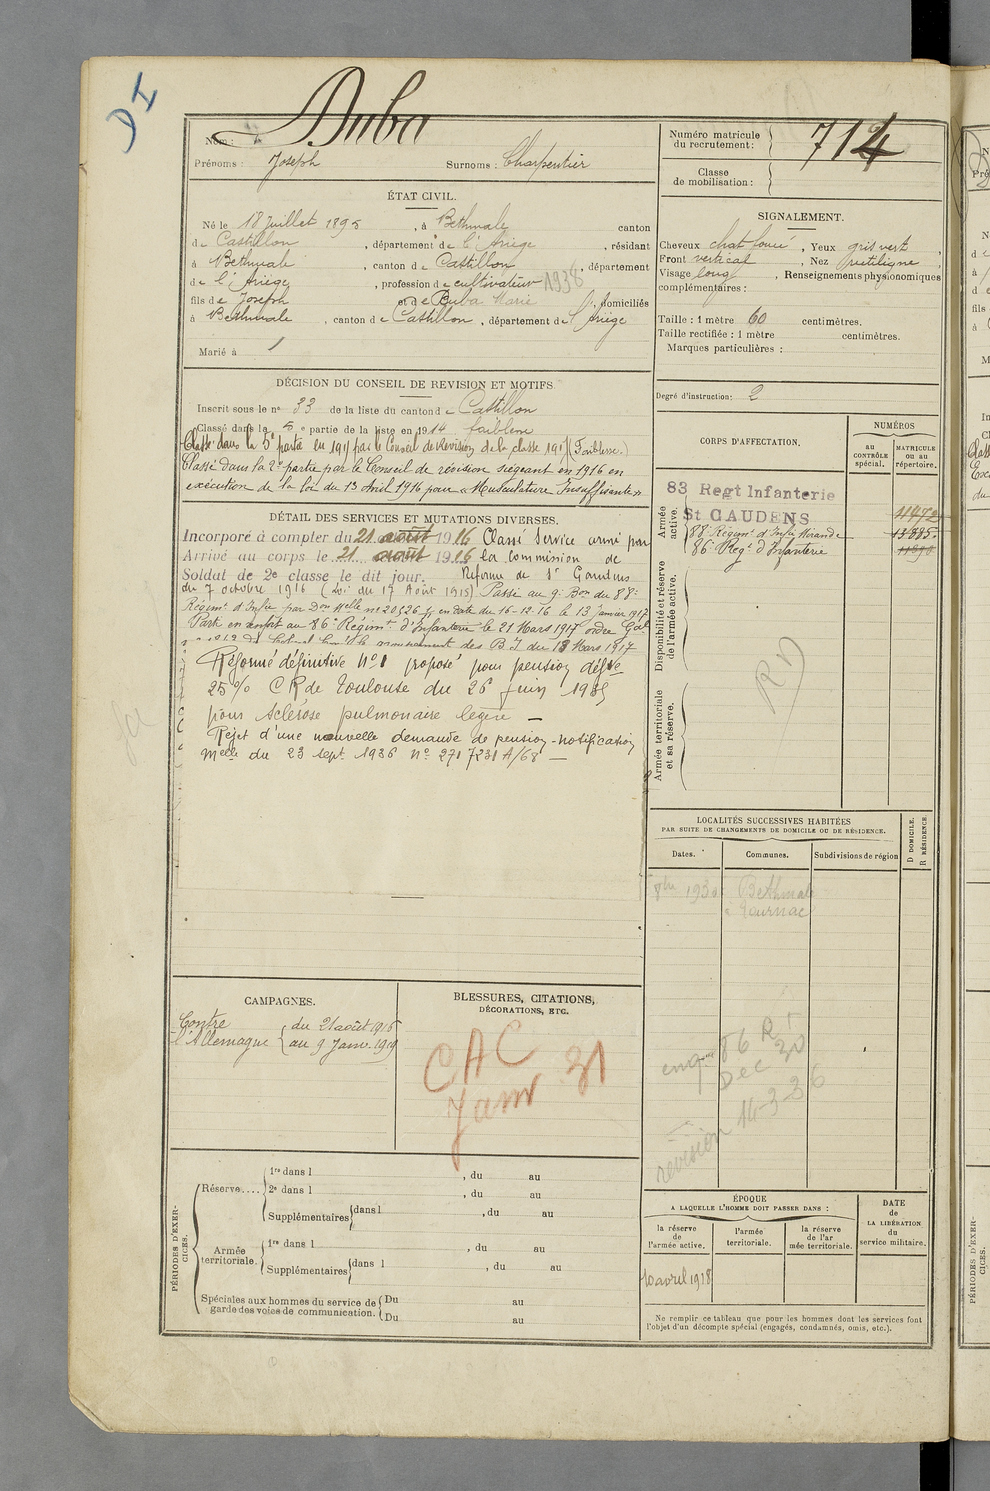 DI
Nom : Duba
Prénoms : Joseph Surnoms : Charpentier
Numéro matricule du recrutement : 714
Classe de mobilisation :
ÉTAT CIVIL.
Né le 18 Juillet 1895, à Bethmale canton
de Castillon, département de l'Ariège, résidant
à Bethmale, canton de Castillon, département
de l'Ariège, profession de cultivateur 1938
fils de Joseph et de Buba Marie, domiciliés
à Bethmale, canton de Castillon, département de l'Ariège
Marié à
SIGNALEMENT.
Cheveux chat foncé, Yeux gris vert
Front vertical, Nez rectiligne
Visage long, Renseignements physionomiques
complémentaires :
Taille : 1 mètre 60 centimètres.
Taille rectifiée : 1 mètre centimètres.
Marques particulières :
Degré d'instruction : 2
DÉCISION DU CONSEIL DE REVISION ET MOTIFS.
Inscrit sous le nº 33 de la liste du canton de Castillon
Classé dans la 5e partie de la liste en 1914 faiblesse
Classé dans la 5e partie en 191 par le Conseil de Revision de la classe 191 (Faiblesse.)
Classé dans la 2e partie par le Conseil de révision siégeant en 1916 en
exécution de la loi du 13 Avril 1916 pour « Musculature Insuffisante »
DÉTAIL DES SERVICES ET MUTATIONS DIVERSES.
Incorporé à compter du 21 août 1916 Classé Service armé par
Arrivé au corps le 21 août 1916 la commission de
Soldat de 2e classe le dit jour. Réforme de St Gaudens
du 7 octobre 1916 (Loi du 17 Août 1915) Passé au 9e Bon du 88e
Régimt d'Infie par Don Mlle nº 20526 en date du 16-12-16 le 13 janvier 1917
Parti en renfort au 86e Régimt d'Infanterie le 21 Mars 1917 ordre Gal
des B.I du 18 Mars 1917
Réformé définitive Nº1 proposé pour pension défve
25% CR de Toulouse du 26 juin 1935
pour Sclérose pulmonaire légère —
Rejet d'une nouvelle demande de pension - notification
Melle du 23 sept. 1936 nº 2717231 A/68 —
CORPS D'AFFECTATION.
NUMÉROS
au CONTRÔLE spécial.
MATRICULE ou au répertoire.
Armée active.
83 Regt Infanterie
St GAUDENS 11472
88e Régimt d'Infie Mirande 13885
86e Regt d'Infanterie 11890
Disponibilité et réserve de l'armée active.
RD
Armée territoriale et sa réserve.
LOCALITÉS SUCCESSIVES HABITÉES
PAR SUITE DE CHANGEMENTS DE DOMICILE OU DE RÉSIDENCE.
Dates. Communes. Subdivisions de région D DOMICILE. R RÉSIDENCE
8bre 1930 Bethmale
Tournac
86 RI
Dec 30
revision 14-3-36
CAMPAGNES.
Contre l'Allemagne
du 21 août 1916
au 9 Janv. 1919
BLESSURES, CITATIONS,
DÉCORATIONS, ETC.
CAC
Janv 31
PÉRIODES D'EXERCICES.
Réserve....
1re dans l , du au
2e dans l , du au
Supplémentaires dans l , du au
Armée territoriale.
1re dans l , du au
Supplémentaires dans l , du au
Spéciales aux hommes du service de garde des voies de communication.
Du au
Du au
ÉPOQUE
A LAQUELLE L'HOMME DOIT PASSER DANS :
la réserve de l'armée active. l'armée territoriale. la réserve de l'ar mée territoriale.
DATE de LA LIBÉRATION du service militaire.
10 avril 1918
Ne remplir ce tableau que pour les hommes dont les services font
l'objet d'un décompte spécial (engagés, condamnés, omis, etc.).